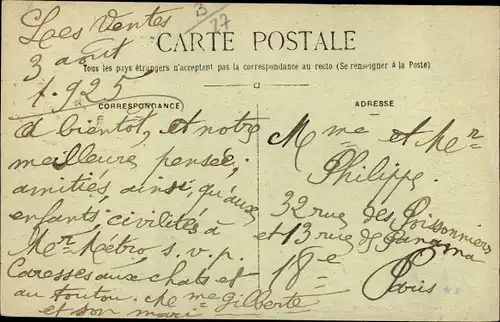 Les Ventes
3 août
1.925
3/77
CARTE POSTALE
Tous les pays étrangers n'acceptent pas la correspondance au recto (Se renseigner à la Poste)
CORRESPONDANCE
A bientôt, et notre
meilleure pensée,
amitiés ainsi qu'aux
enfants, civilités à
Mer Metro s.v.p.
Caresses aux chats et
au toutou. Me me Gilberte
et son mari
ADRESSE
Mme et Mer
Philippe
32 rue des Poissonniers
et 13 rue de Panama
18e
Paris